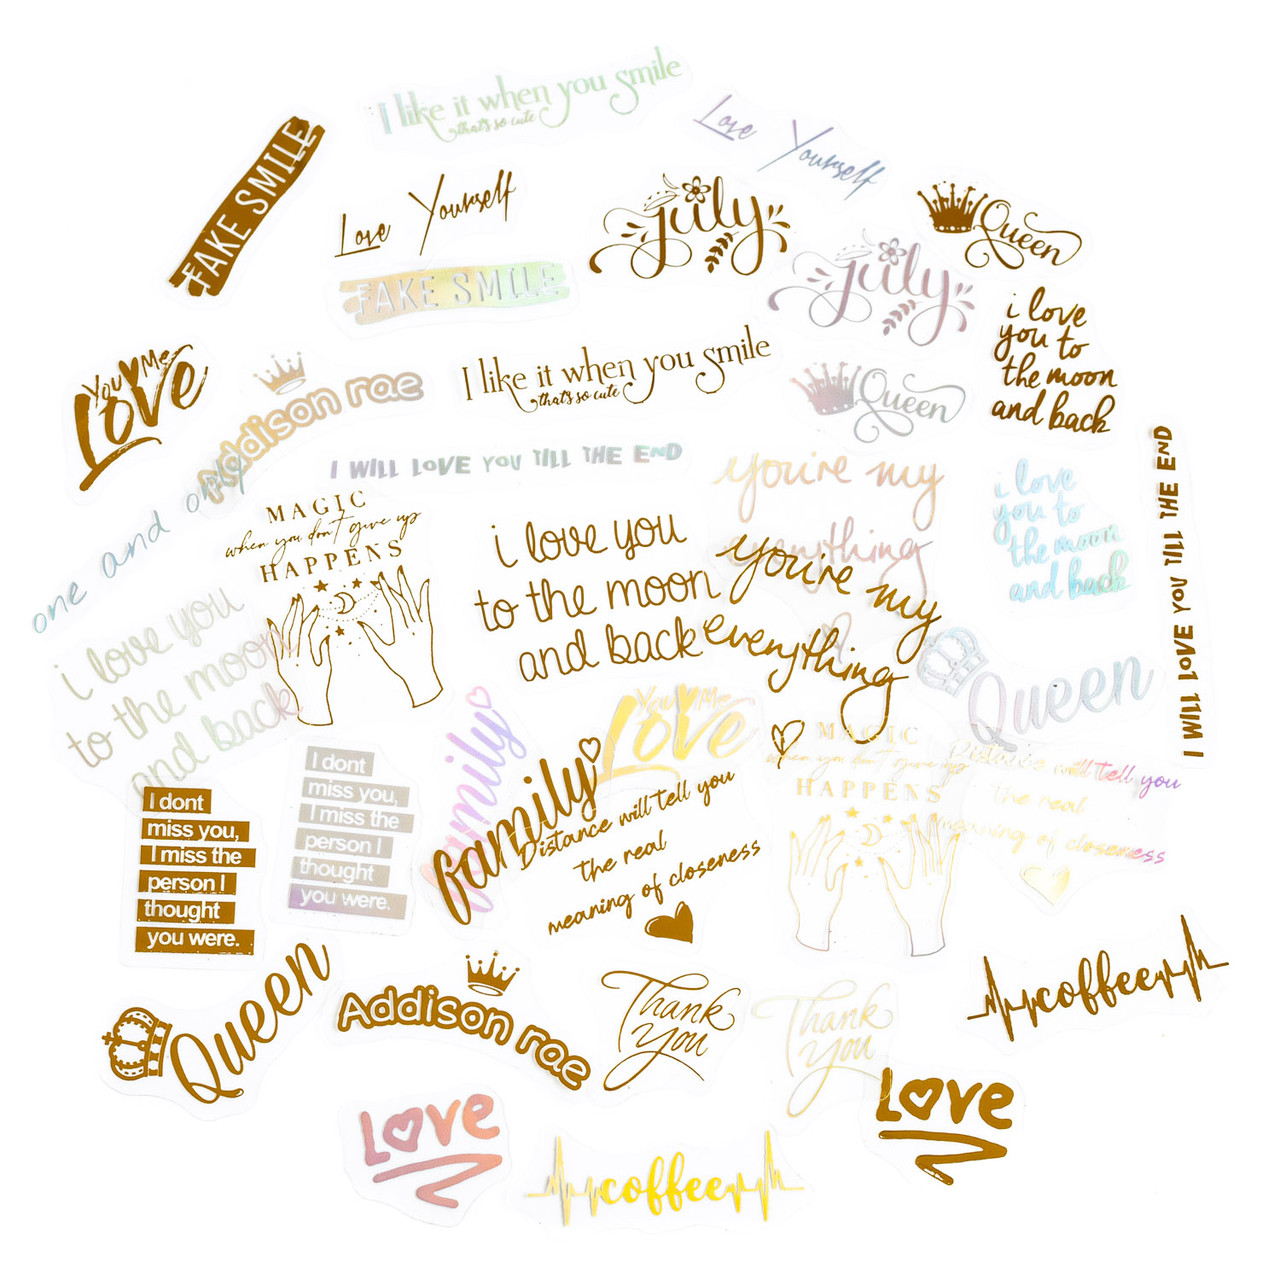 I like it when you smile
that's so cute
Love Yourself
FAKE SMILE
Love Yourself
july
Queen
FAKE SMILE
july
i love
you to
the moon
and back
You Me
Love
Addison rae
I like it when you smile
that's so cute
Queen
I WILL LOVE YOU TILL THE END
I WILL LOVE YOU TILL THE END
one and only
MAGIC
when you don't give up
HAPPENS
i love you
to the moon
and back
you're my
everything
you're my
everything
i love
you to
the moon
and back
i love you
to the moon
and back
Queen
family
You Me
Love
family
Distance will tell you
the real
meaning of closeness
MAGIC
when you don't give up
HAPPENS
Distance will tell you
the real
meaning of closeness
I dont
miss you,
I miss the
person I
thought
you were.
I dont
miss you,
I miss the
person I
thought
you were.
Queen
Addison rae
Thank
you
Thank
you
coffee
Love
Love
coffee